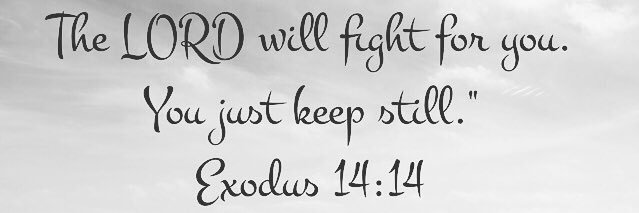 The LORD will fight for you.
You just keep still."
Exodus 14:14